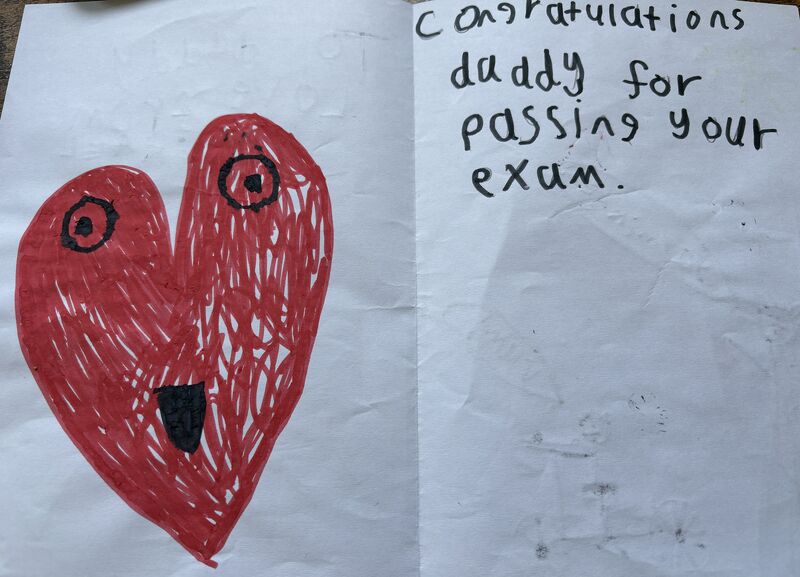 Congratulations
daddy for
passing your
exam.